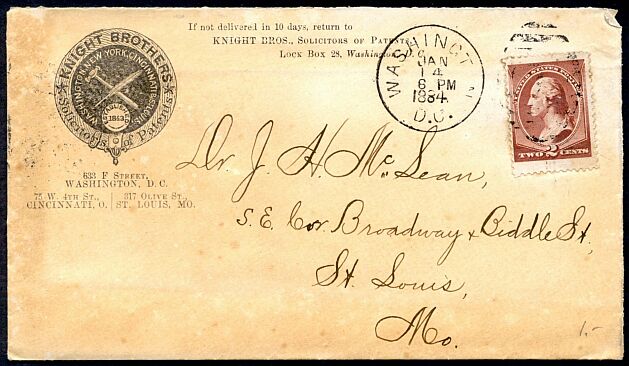 If not delivered in 10 days, return to
KNIGHT BROS., SOLICITORS OF PATENTS,
LOCK BOX 28, Washington, D.C.
KNIGHT BROTHERS
WASHINGTON, NEW YORK, CINCINNATI
1843
Solicitors of Patents
633 F STREET,
WASHINGTON, D. C.
75 W. 4TH ST., | 317 OLIVE ST.,
CINCINNATI, O. | ST. LOUIS, MO.
WASHINGT
JAN
14
6 PM
1884
D.C.
UNITED STATES POSTAGE
TWO 2 CENTS
Dr. J. H. McLean,
S. E. Cor. Broadway & Biddle St,
St. Louis,
Mo.
1.-